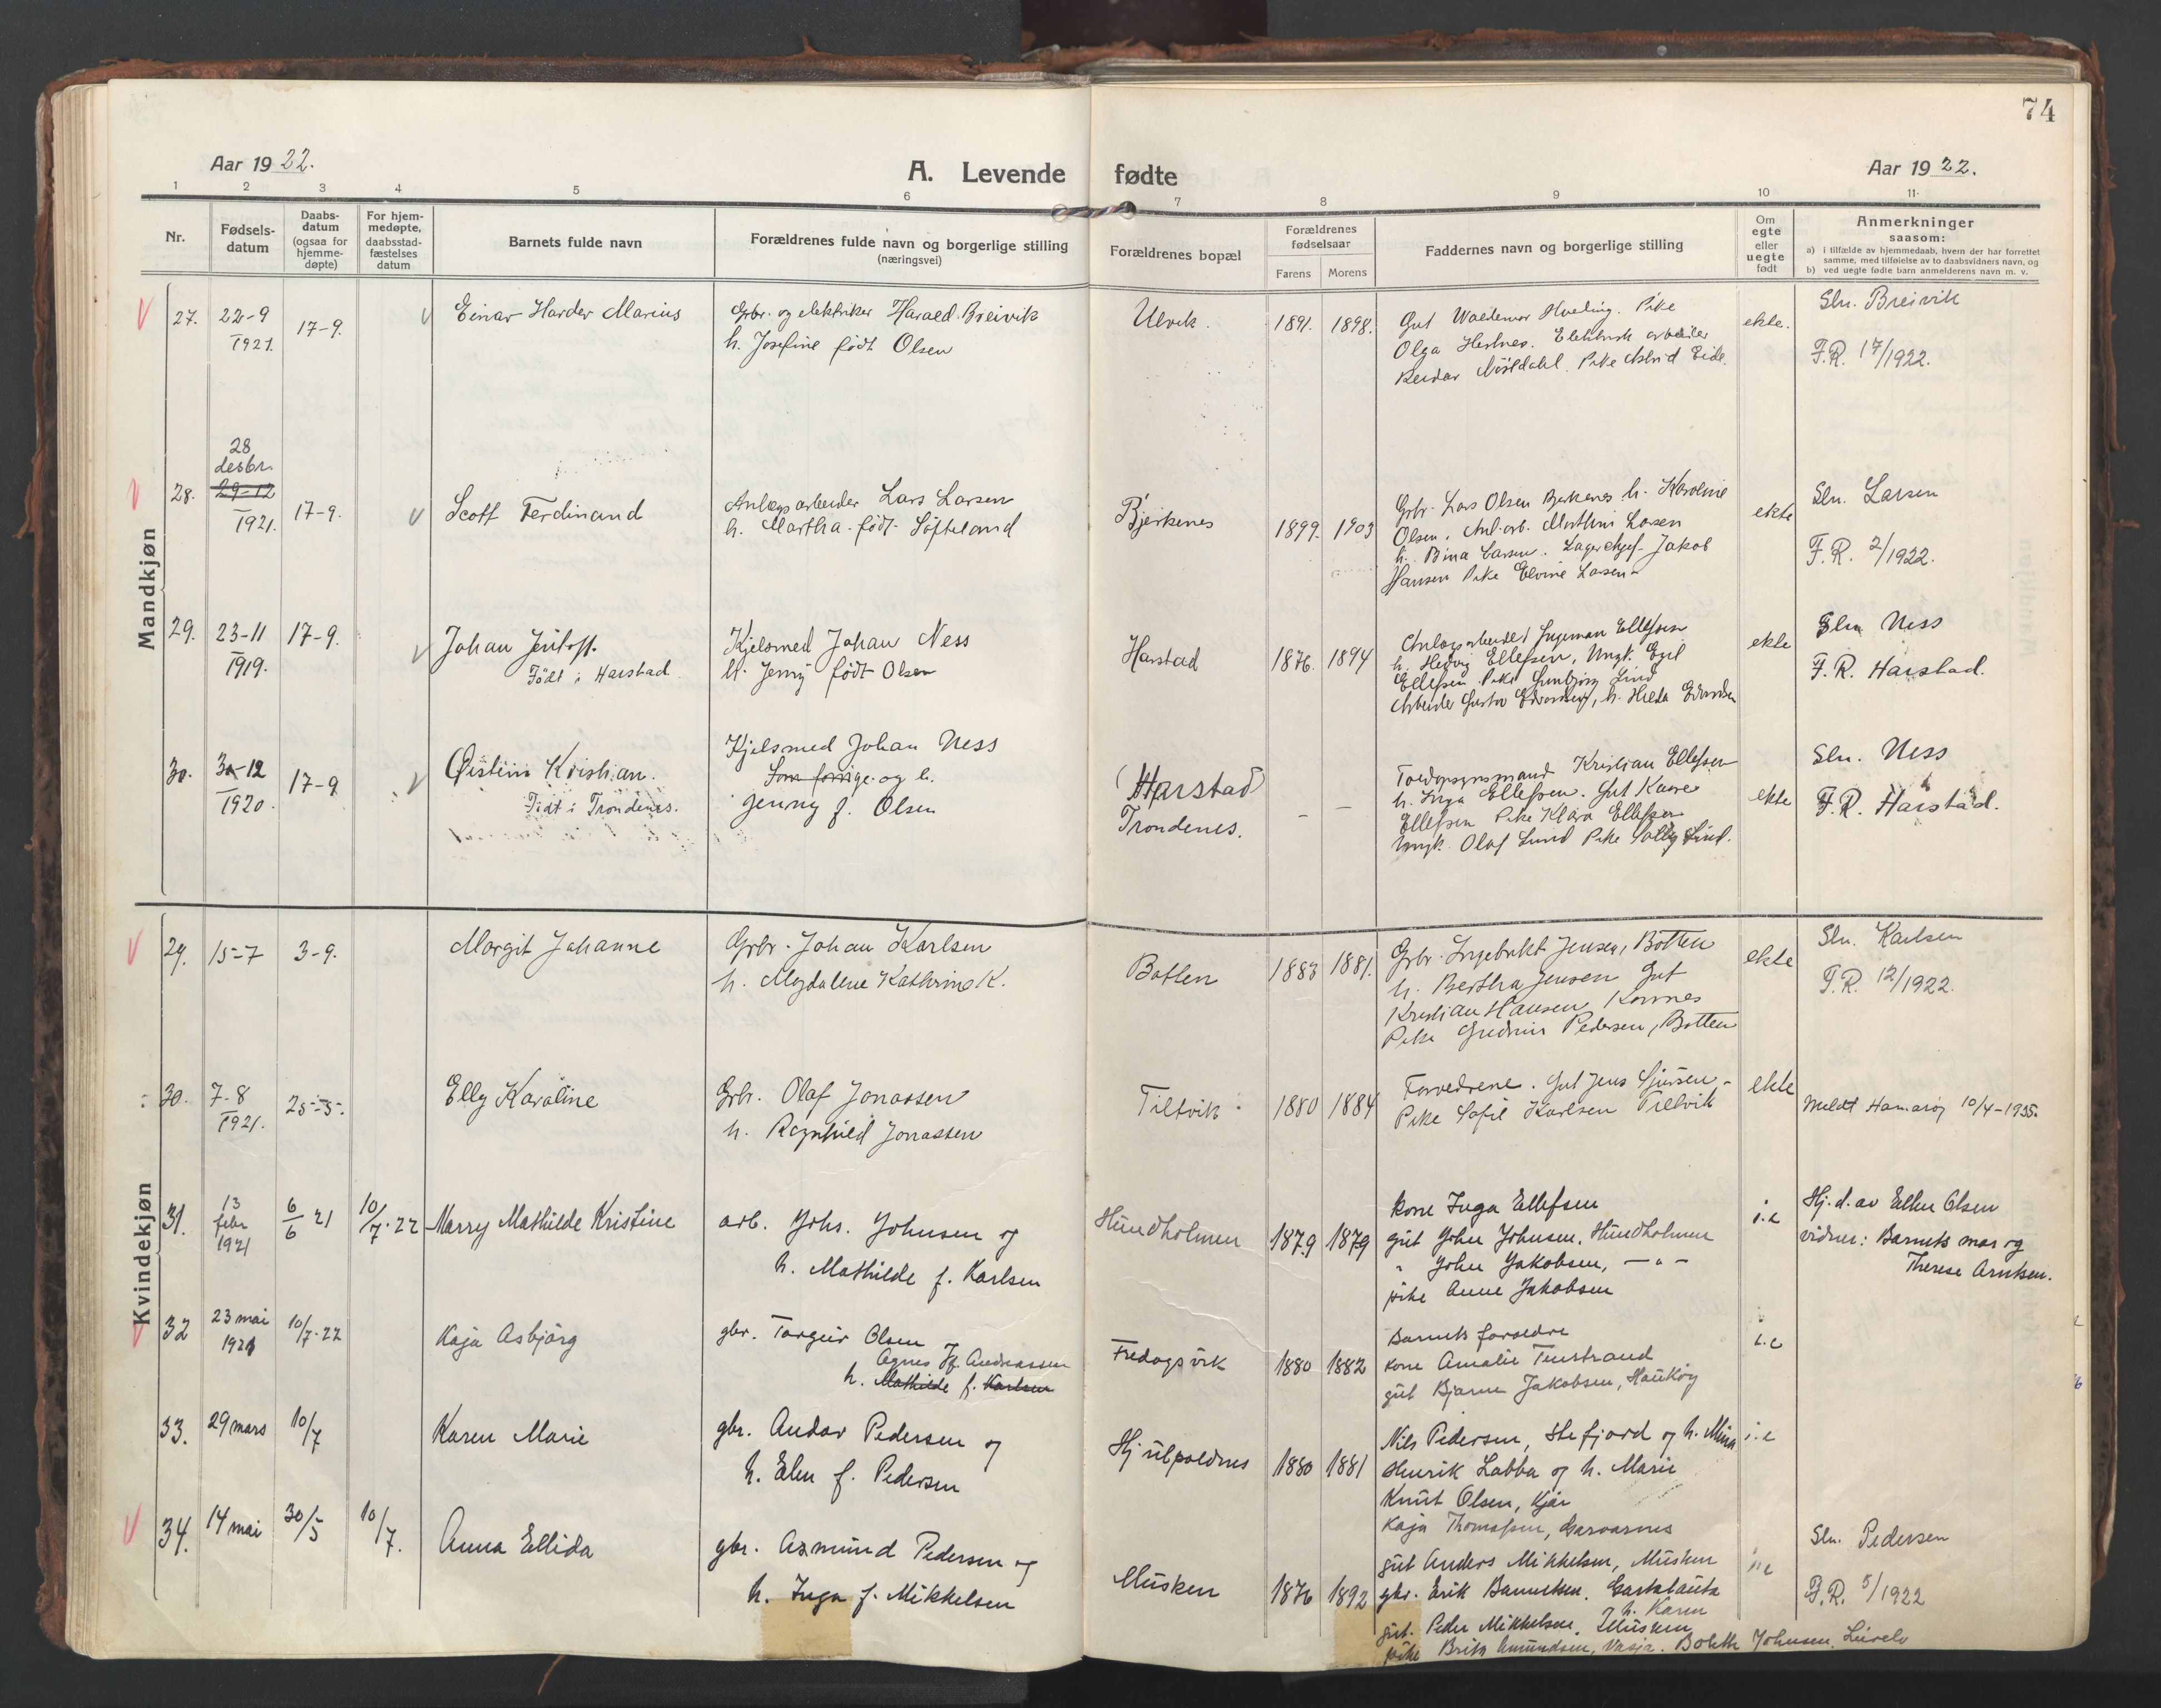 74
Aar 1922.
A. Levende fødte
Aar 1922.
1 2 3 4 5 6 7 8 9 10 11
Nr.
Fødsels-
datum
Daabs-
datum
(ogsaa for
hjemme-
døpte)
For hjem-
medøpte,
daabsstad-
fæstelses
datum
Barnets fulde navn
Forældrenes fulde navn og borgerlige stilling
(næringsvei)
Forældrenes bopæl
Forældrenes
fødselsaar
Farens Morens
Faddernes navn og borgerlige stilling
Om
egte
eller
uegte
født
Anmerkninger
saasom:
a) i tilfælde av hjemmedaab, hvem der har forrettet
samme, med tilføielse av to daabsvidners navn, og
b) ved uegte fødte barn anmelderens navn m. v.
Mandkjøn
27. 22-9
1921.
17-9.
Einar Harder Marius
Grbr. og elektriker Harald Breivik
h. Josefine født Olsen
Ulvik.
1891. 1898.
Gut Waldemar Hveding. Pike
Olga Hestnes. Elektrisk arbeider
Reidar Nøstdahl. Pike Astrid Eide.
ekte.
Sln. Breivik
F.R. 17/1922.
28. 28
desbr.
29-12
1921.
17-9.
Scott Ferdinand
Anlægsarbeider Lars Larsen
h. Martha født Søfteland
Bjerkenes
1899. 1903
Grbr. Lars Olsen Bjerkenes h. Karoline
Olsen. Anl.arb. Larsen
h. Bina Larsen. Jakob
Hansen Pike Larsen
ekte
Sln. Larsen
F.R. 2/1922.
29. 23-11
1919.
17-9.
Johan Jentoft.
Født i Harstad
Kjelsmed Johan Ness
h. Jenny født Olsen
Harstad
1876. 1894
Anlægsarbeider Ingeman Ellefsen
h. Hedvig Ellefsen, Ungk. Egil
Ellefsen. Pike Gunbjørg Lind
Arbeider Gustav Edvardsen, h. Hilda Edvardsen
ekte
Sln Ness
F.R. Harstad.
30. 30-12
1920.
17-9
Øistein Kristian.
Født i Trondenes.
Kjelsmed Johan Ness
Som forrige og h.
Jenny f. Olsen
(Harstad)
Trondenes.
- -
Toldopsynsmand Kristian Ellefsen
h. Inga Ellefsen. Gut Kaare
Ellefsen Pike Klara Ellefsen
Ungk. Olaf Lund Pike Lind.
ekte
Sln. Ness
F.R. Harstad.
Kvindekjøn
29. 15-7 3-9.
Margit Johanne
Grbr. Johan Karlsen
h. Magdalene Kathrine K.
Botten
1883 1881.
Grbr. Ingebrikt Jensen, Botten
h. Bertha Jensen Gut
Kristian Hansen, Korsnes
Pike Gudrun Pedersen, Botten
ekte
Sln. Karlsen
F.R. 12/1922.
30. 7-8
1921.
25-5-.
Elly Karoline
Grbr. Olaf Jonassen
h. Ragnhild Jonassen
Tiltvik.
1880 1884
Forældrene. Gut Jens Sjursen-
Pike Sofie Karlsen Tiltvik
ekte
Meldt Hamarøy 10/4-1935.
31. 13
febr
1921
6/6 21
10/7.22
Marry Mathilde Kristine
arb. Johs. Johnsen og
h. Mathilde f. Karlsen
Hundholmen
1879 1879
kone Inga Ellefsen
gut John Johnsen, Hundholmen
" John Jakobsen, — " —
pike Anne Jakobsen
i.e
Hj.d. av Ellen Olsen
vidner: Barnets mor og
Therese Arntsen.
32 23 mai
1921
10/7.22
Kaja Asbjørg
gbr. Torgeir Olsen og
Agnes Andreassen
h. Mathilde f. Karlsen
Fredagsvik
1880 1882
Barnets foreldre
kone Amalie Tenstrand
gut Bjarne Jakobsen, Haukøy
i.e
33. 29 mars 10/7
Karen Marie
gbr. Andor Pedersen og
h. Elen f. Pedersen
1880 1881
Nils Pedersen, Stefjord og h. Mina
Henrik Labba og h. Marie
Knut Olsen, Kjår
Kaja Thomassen,
i.e
34. 14 mai 30/5 10/7.
Anna Ellida
gbr. Asmund Pedersen og
h. Inga f. Mikkelsen
Musken
1876 1892
gut Anders Mikkelsen, Musken
gbr. Erik
h. Karen
gut. Peder Mikkelsen, Musken
pike Brita Amundsen, Johnsen.
i.e
Sln. Pedersen
F.R. 5/1922